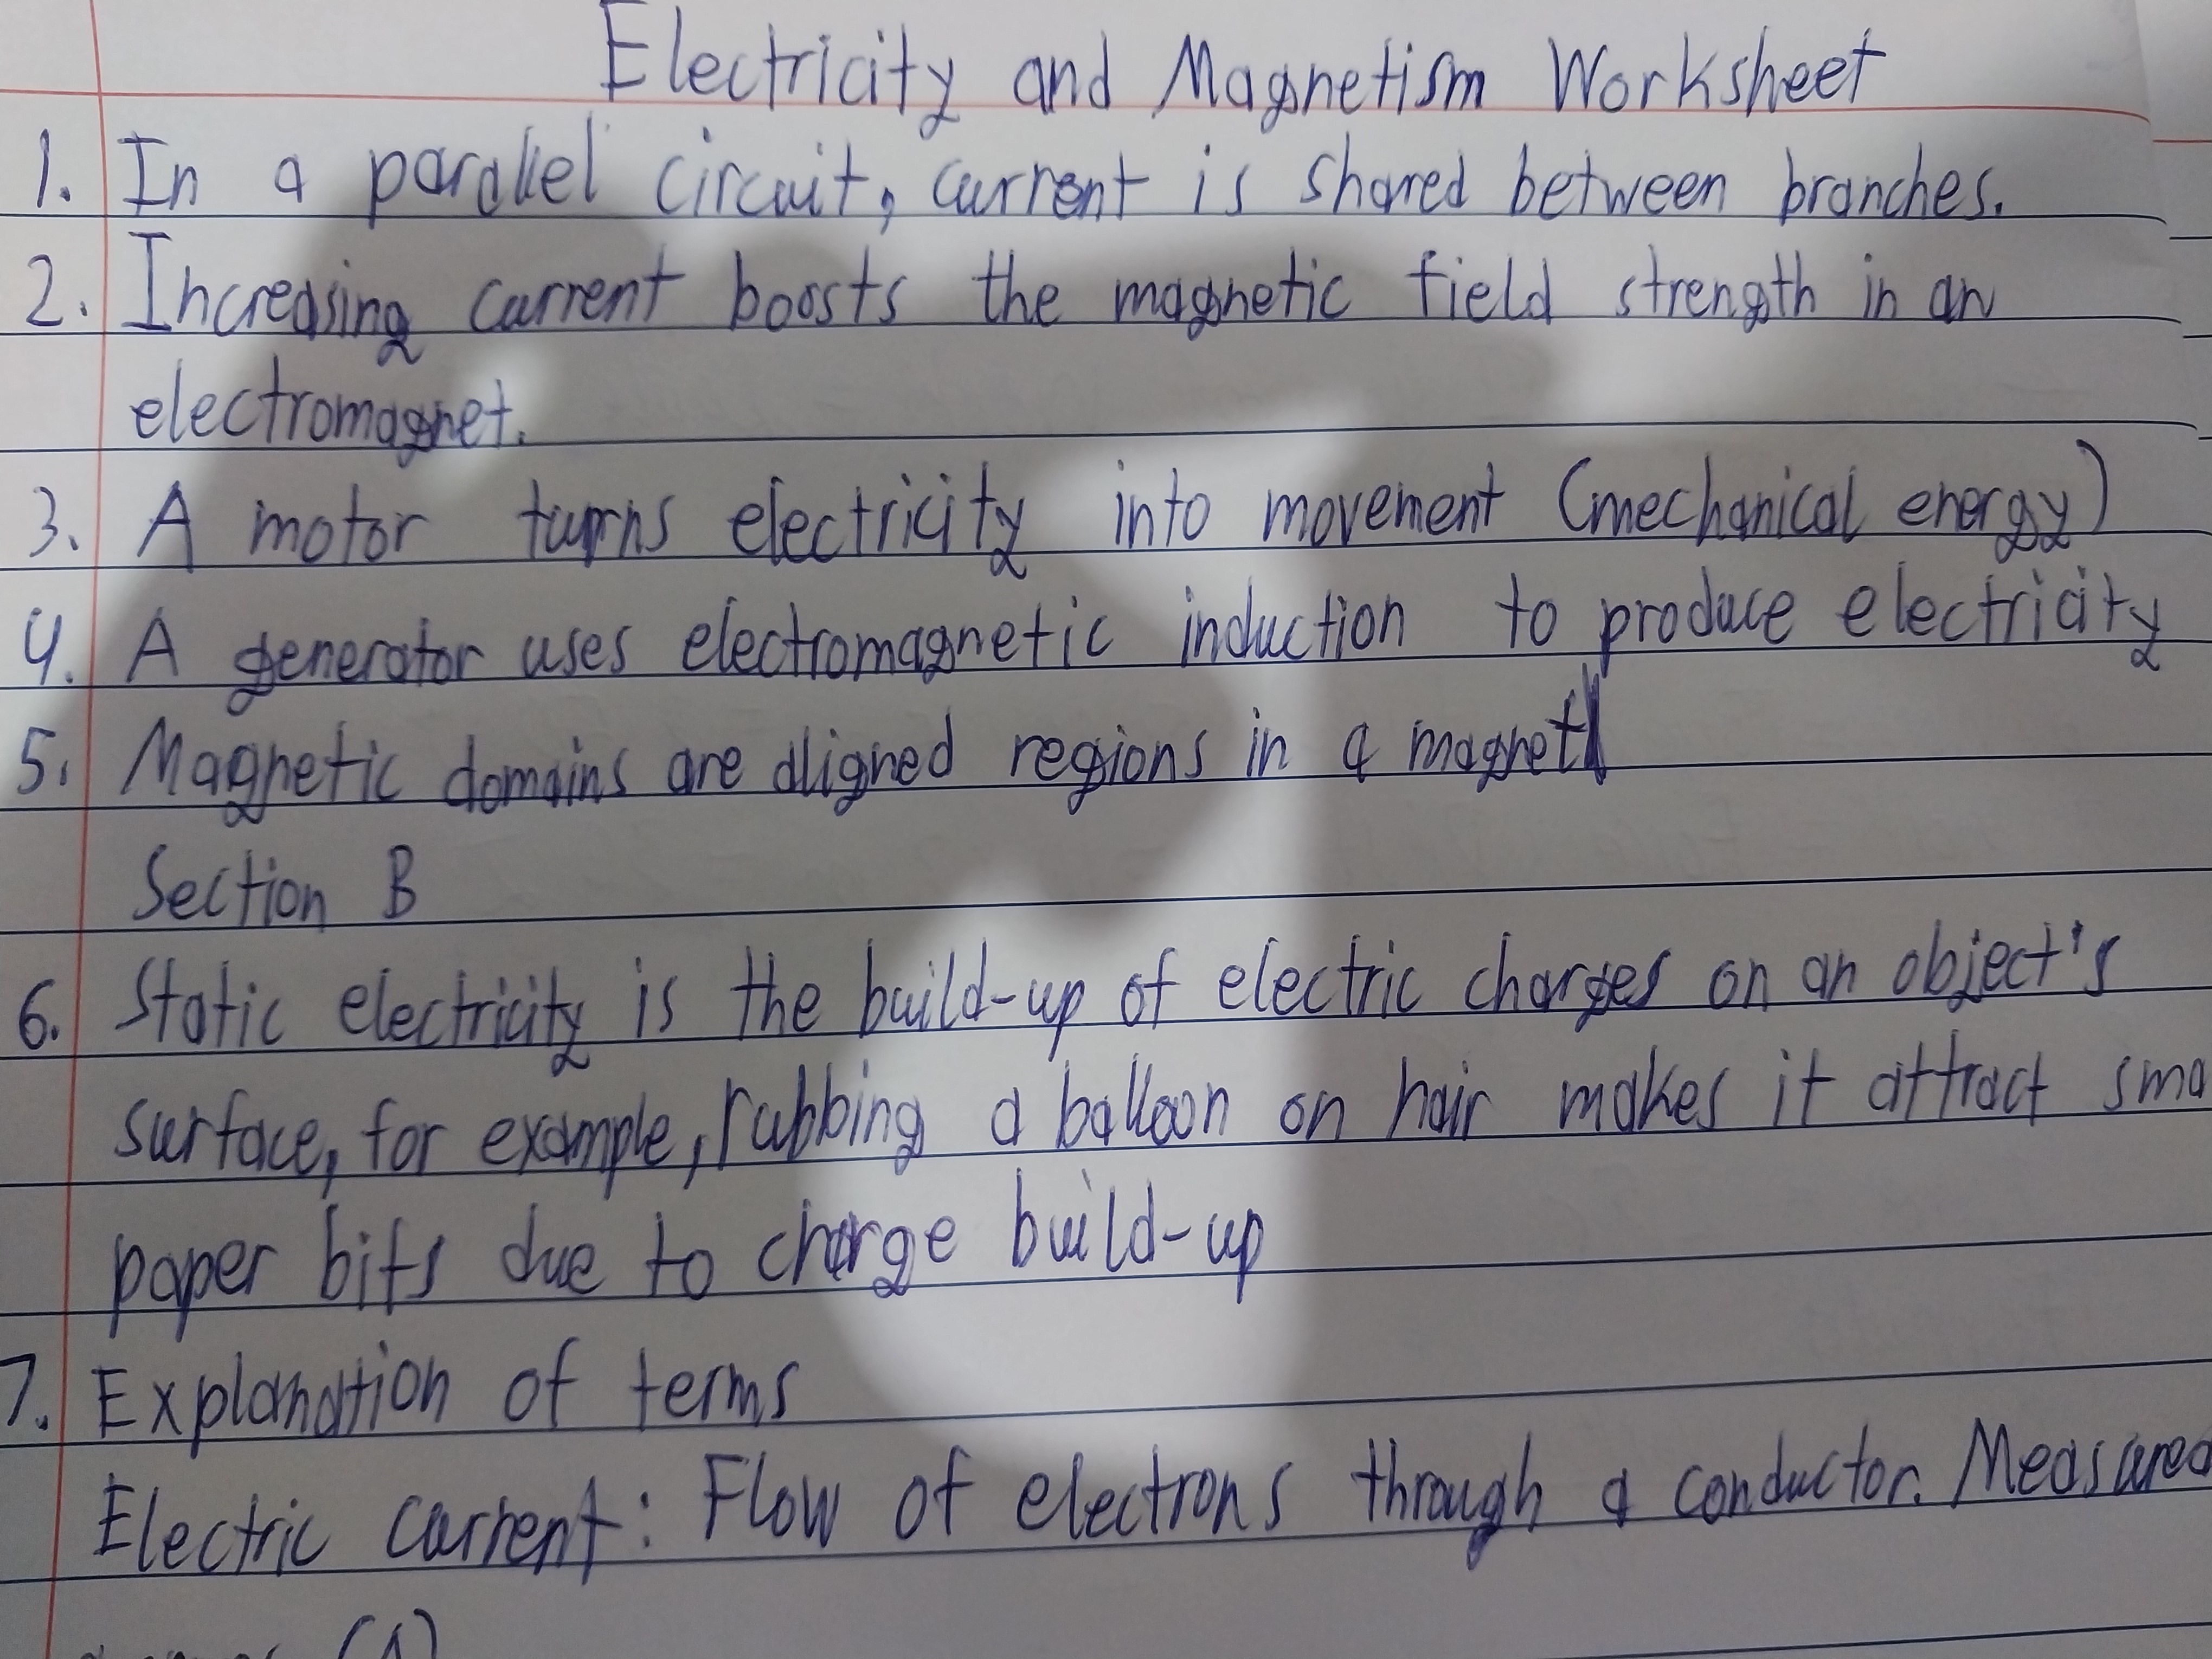 Electricity and Magnetism Worksheet
1. In a parallel circuit, current is shared between branches.
2. Increasing current boosts the magnetic field strength in an
electromagnet.
3. A motor turns electricity into movement (mechanical energy)
4. A generator uses electromagnetic induction to produce electricity
5. Magnetic domains are aligned regions in a magnet
Section B
6. Static electricity is the build-up of electric charges on an object's
surface, for example, rubbing a balloon on hair makes it attract sma
paper bits due to charge build-up
7. Explanation of terms
Electric current: Flow of electrons through a conductor. Measured
(A)